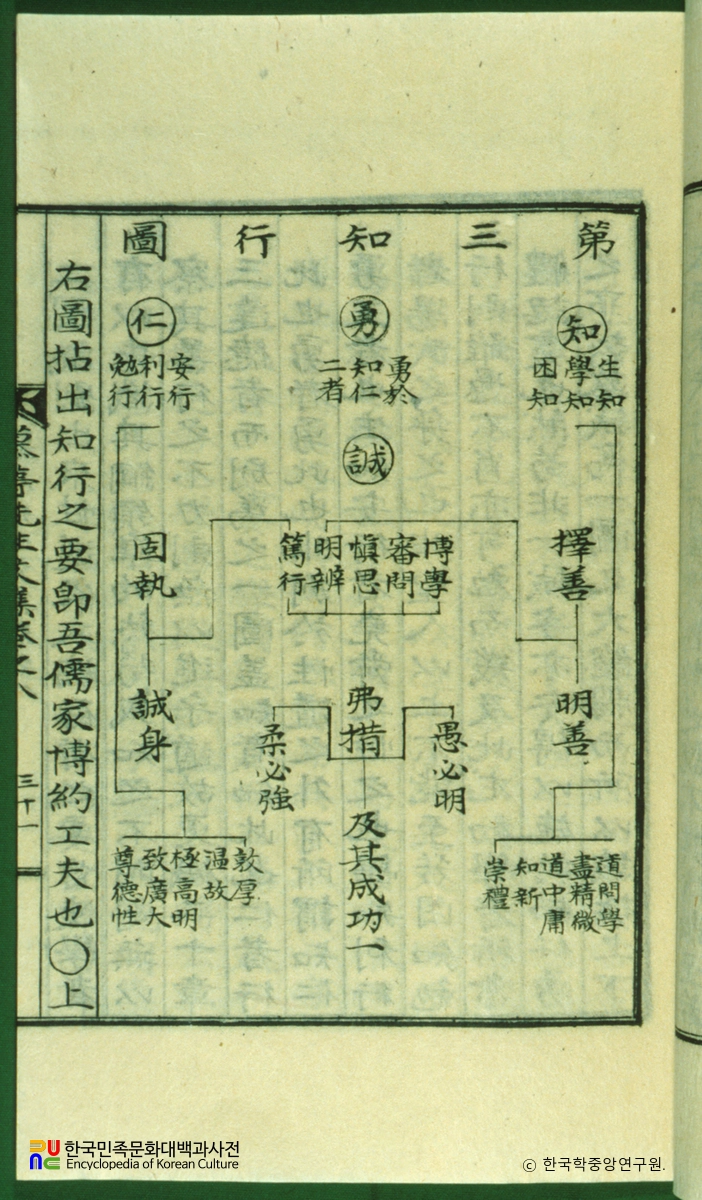 第三知行圖
知
生知
學知
困知
勇
勇於
知仁
二者
仁
安行
利行
勉行
誠
擇善
博學
審問
愼思
明辨
篤行
固執
明善
愚必明
弗措
柔必強
誠身
及其成功一
道問學
盡精微
道中庸
知新
崇禮
敦厚
温故
極高明
致廣大
尊德性
右圖拈出知行之要卽吾儒家博約工夫也〇上
先生文集卷之八
三十一
한국민족문화대백과사전
Encyclopedia of Korean Culture
© 한국학중앙연구원.